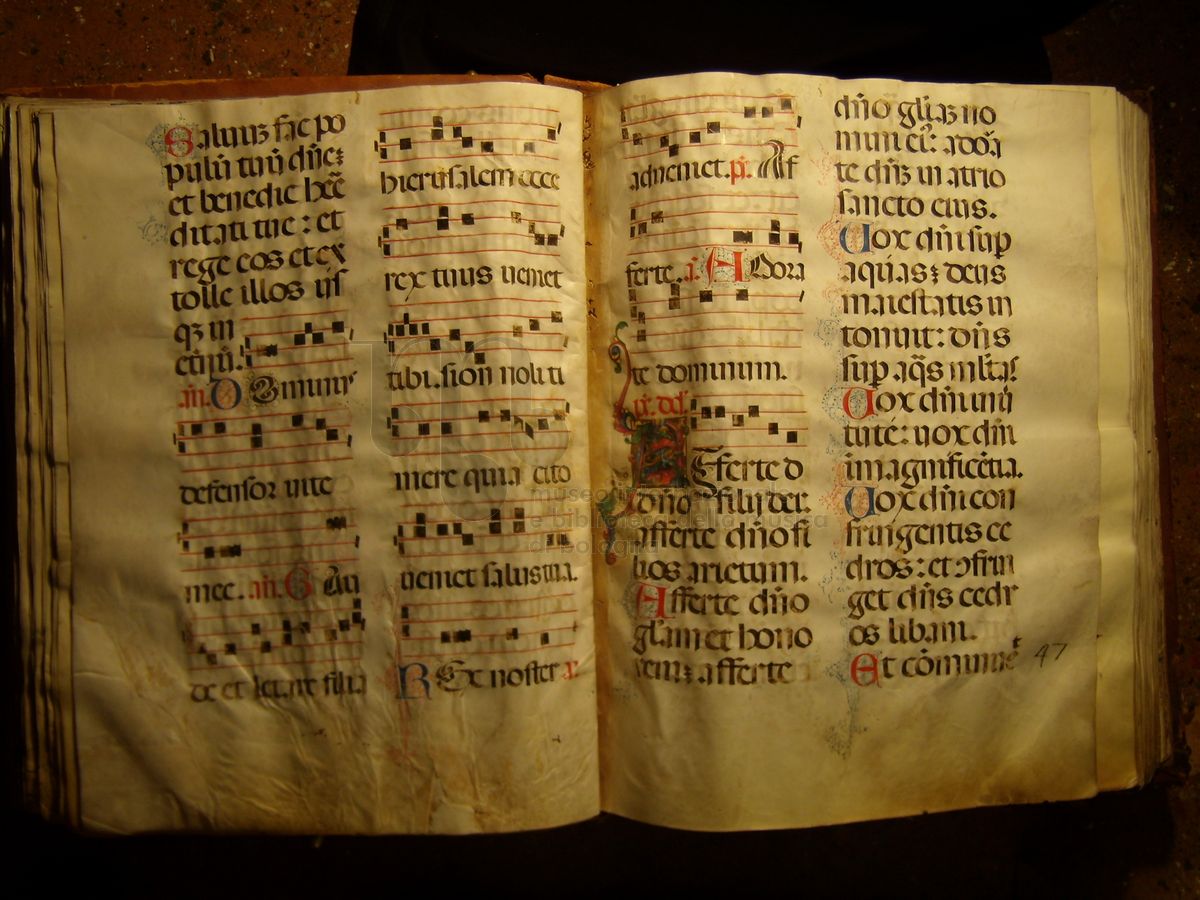 Saluuz fac po
pulū tuū dñez
et benedic heē
ditati tue : et
rege eos et ex
tolle illos usʼ
qz in
etnū.
añ. D Ominus
defensor uite
mee. añ. G Au
de et letare filia
hierusalem ecce
rex tuus ueniet
tibi. sion noli ti
mere quia cito
ueniet salus tua.
R Ex noster
adueniet. ps. Af
ferte. añ. A Dora
te dominum.
ps. dd.
A Fferte d
dño filij dei:
afferte dño fi
lios arietum.
Afferte dño
glam et hono
rem: afferte
dño glaz no
mini ei: adoā
te dñz in atrio
sancto eius.
Uox dñi sup
aquas: deus
maiestatis in
tonuit : dñs
sup aqs mltas
Uox dñi in uir
tute: uox dñi
in magnificētia.
Uox dñi con
fringentis ce
dros : et ɔfrin
get dñs cedr
os libani.
Et cōminuet
47
museo internazionale
e biblioteca della musica
di bologna